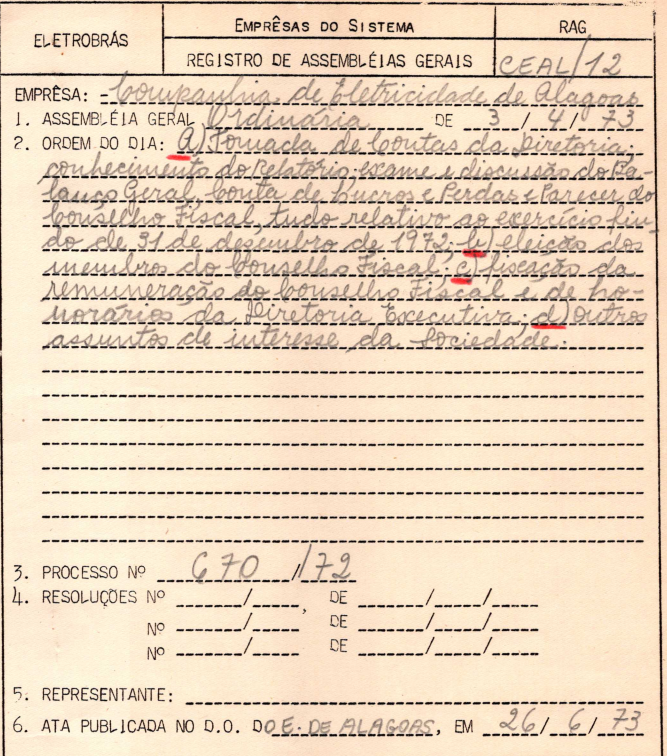 ELETROBRÁS
EMPRÊSAS DO SISTEMA
REGISTRO DE ASSEMBLÉIAS GERAIS
RAG
CEAL/12
EMPRÊSA: Companhia de Eletricidade de Alagoas
1. ASSEMBLÉIA GERAL Ordinária DE 3 / 4 / 73
2. ORDEM DO DIA: a) Tomada de Contas da Diretoria;
conhecimento do Relatório, exame e discussão do Ba-
lanço Geral, Conta de Lucros e Perdas e Parecer do
Conselho Fiscal, tudo relativo ao exercício fin-
do de 31 de dezembro de 1972; b) eleição dos
membros do Conselho Fiscal; c) fixação da
remuneração do Conselho Fiscal e de ho-
norários da Diretoria Executiva; d) outros
assuntos de interesse da Sociedade.
3. PROCESSO Nº 670 /72
4. RESOLUÇÕES Nº / , DE / /
Nº / DE / /
Nº / DE / /
5. REPRESENTANTE:
6. ATA PUBLICADA NO D.O. DO E. DE ALAGOAS, EM 26/ 6 / 73